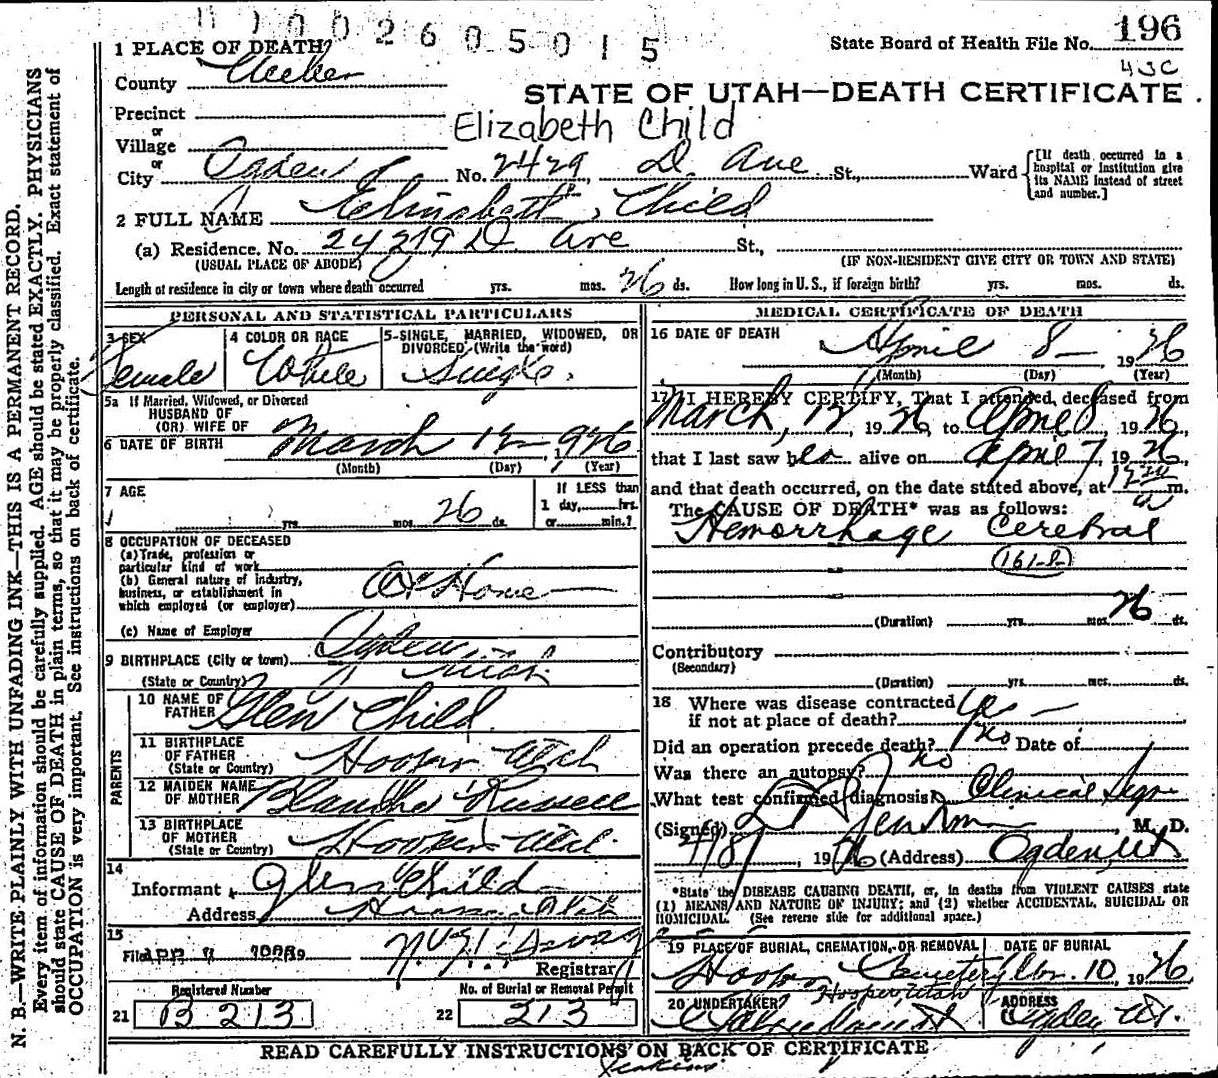 1 0 0 2 6 0 5 0 1 5
196
State Board of Health File No.
1 PLACE OF DEATH
County Weber
STATE OF UTAH—DEATH CERTIFICATE.
Precinct
or
Village
Elizabeth Child
or
City Ogden No. 2429 D. Ave St., Ward
[If death occurred in a hospital or institution give its NAME instead of street and number.]
2 FULL NAME Elizabeth Child
(a) Residence. No. 2429 D. Ave St.,
(USUAL PLACE OF ABODE) (IF NON-RESIDENT GIVE CITY OR TOWN AND STATE)
Length of residence in city or town where death occurred yrs. mos. 26 ds. How long in U. S., if foreign birth? yrs. mos. ds.
PERSONAL AND STATISTICAL PARTICULARS
3 SEX
Female
4 COLOR OR RACE
White
5 SINGLE, MARRIED, WIDOWED, OR
DIVORCED (Write the word)
Single.
5a If Married, Widowed, or Divorced
HUSBAND OF
(OR) WIFE OF
6 DATE OF BIRTH March 12 1926
(Month) (Day) (Year)
7 AGE
yrs. mos. 26 ds.
If LESS than
1 day, hrs.
or min.?
8 OCCUPATION OF DECEASED
(a) Trade, profession or
particular kind of work
(b) General nature of industry,
business, or establishment in
which employed (or employer)
At Home
(c) Name of Employer
9 BIRTHPLACE (City or town) Ogden
(State or Country) Utah
PARENTS
10 NAME OF
FATHER Glen Child
11 BIRTHPLACE
OF FATHER
(State or Country) Hooper Utah
12 MAIDEN NAME
OF MOTHER Blanche Russell
13 BIRTHPLACE
OF MOTHER
(State or Country) Hooper Utah.
14
Informant Glen Child
Address Utah
15
Filed
Registrar
Registered Number
21 B 213
No. of Burial or Removal Permit
22 213
MEDICAL CERTIFICATE OF DEATH
16 DATE OF DEATH
April 8 1926
(Month) (Day) (Year)
17 I HEREBY CERTIFY, That I attended deceased from
March, 12 1926, to April 8, 1926,
that I last saw her alive on April 7, 1926,
and that death occurred, on the date stated above, at m.
The CAUSE OF DEATH* was as follows:
Hemorrhage Cerebral
(Duration) yrs. mos. 26 ds.
Contributory
(Secondary)
(Duration) yrs. mos. ds.
18 Where was disease contracted
if not at place of death? Yes
Did an operation precede death? No Date of
Was there an autopsy? No
What test confirmed diagnosis? Clinical Sign
(Signed) M. D.
4/8, 1926 (Address) Ogden, Ut
*State the DISEASE CAUSING DEATH, or, in deaths from VIOLENT CAUSES state
(1) MEANS AND NATURE OF INJURY; and (2) whether ACCIDENTAL, SUICIDAL OR
HOMICIDAL. (See reverse side for additional space.)
19 PLACE OF BURIAL, CREMATION, OR REMOVAL
Hooper Cemetery
Hooper, Utah
DATE OF BURIAL
Apr. 10, 1926
20 UNDERTAKER
ADDRESS
Ogden Ut.
READ CAREFULLY INSTRUCTIONS ON BACK OF CERTIFICATE
N. B.—WRITE PLAINLY WITH UNFADING INK—THIS IS A PERMANENT RECORD.
Every item of information should be carefully supplied. AGE should be stated EXACTLY. PHYSICIANS
should state CAUSE OF DEATH in plain terms, so that it may be properly classified. Exact statement of
OCCUPATION is very important. See instructions on back of certificate.